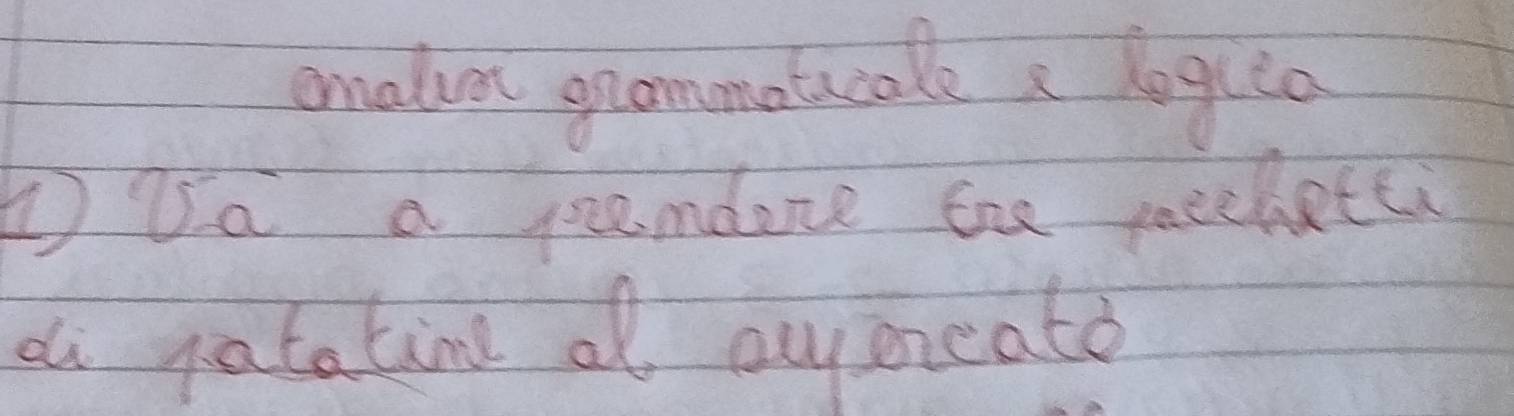 analisi grammaticale e logica
1) Va a prendere tre pacchetti
di patatine al